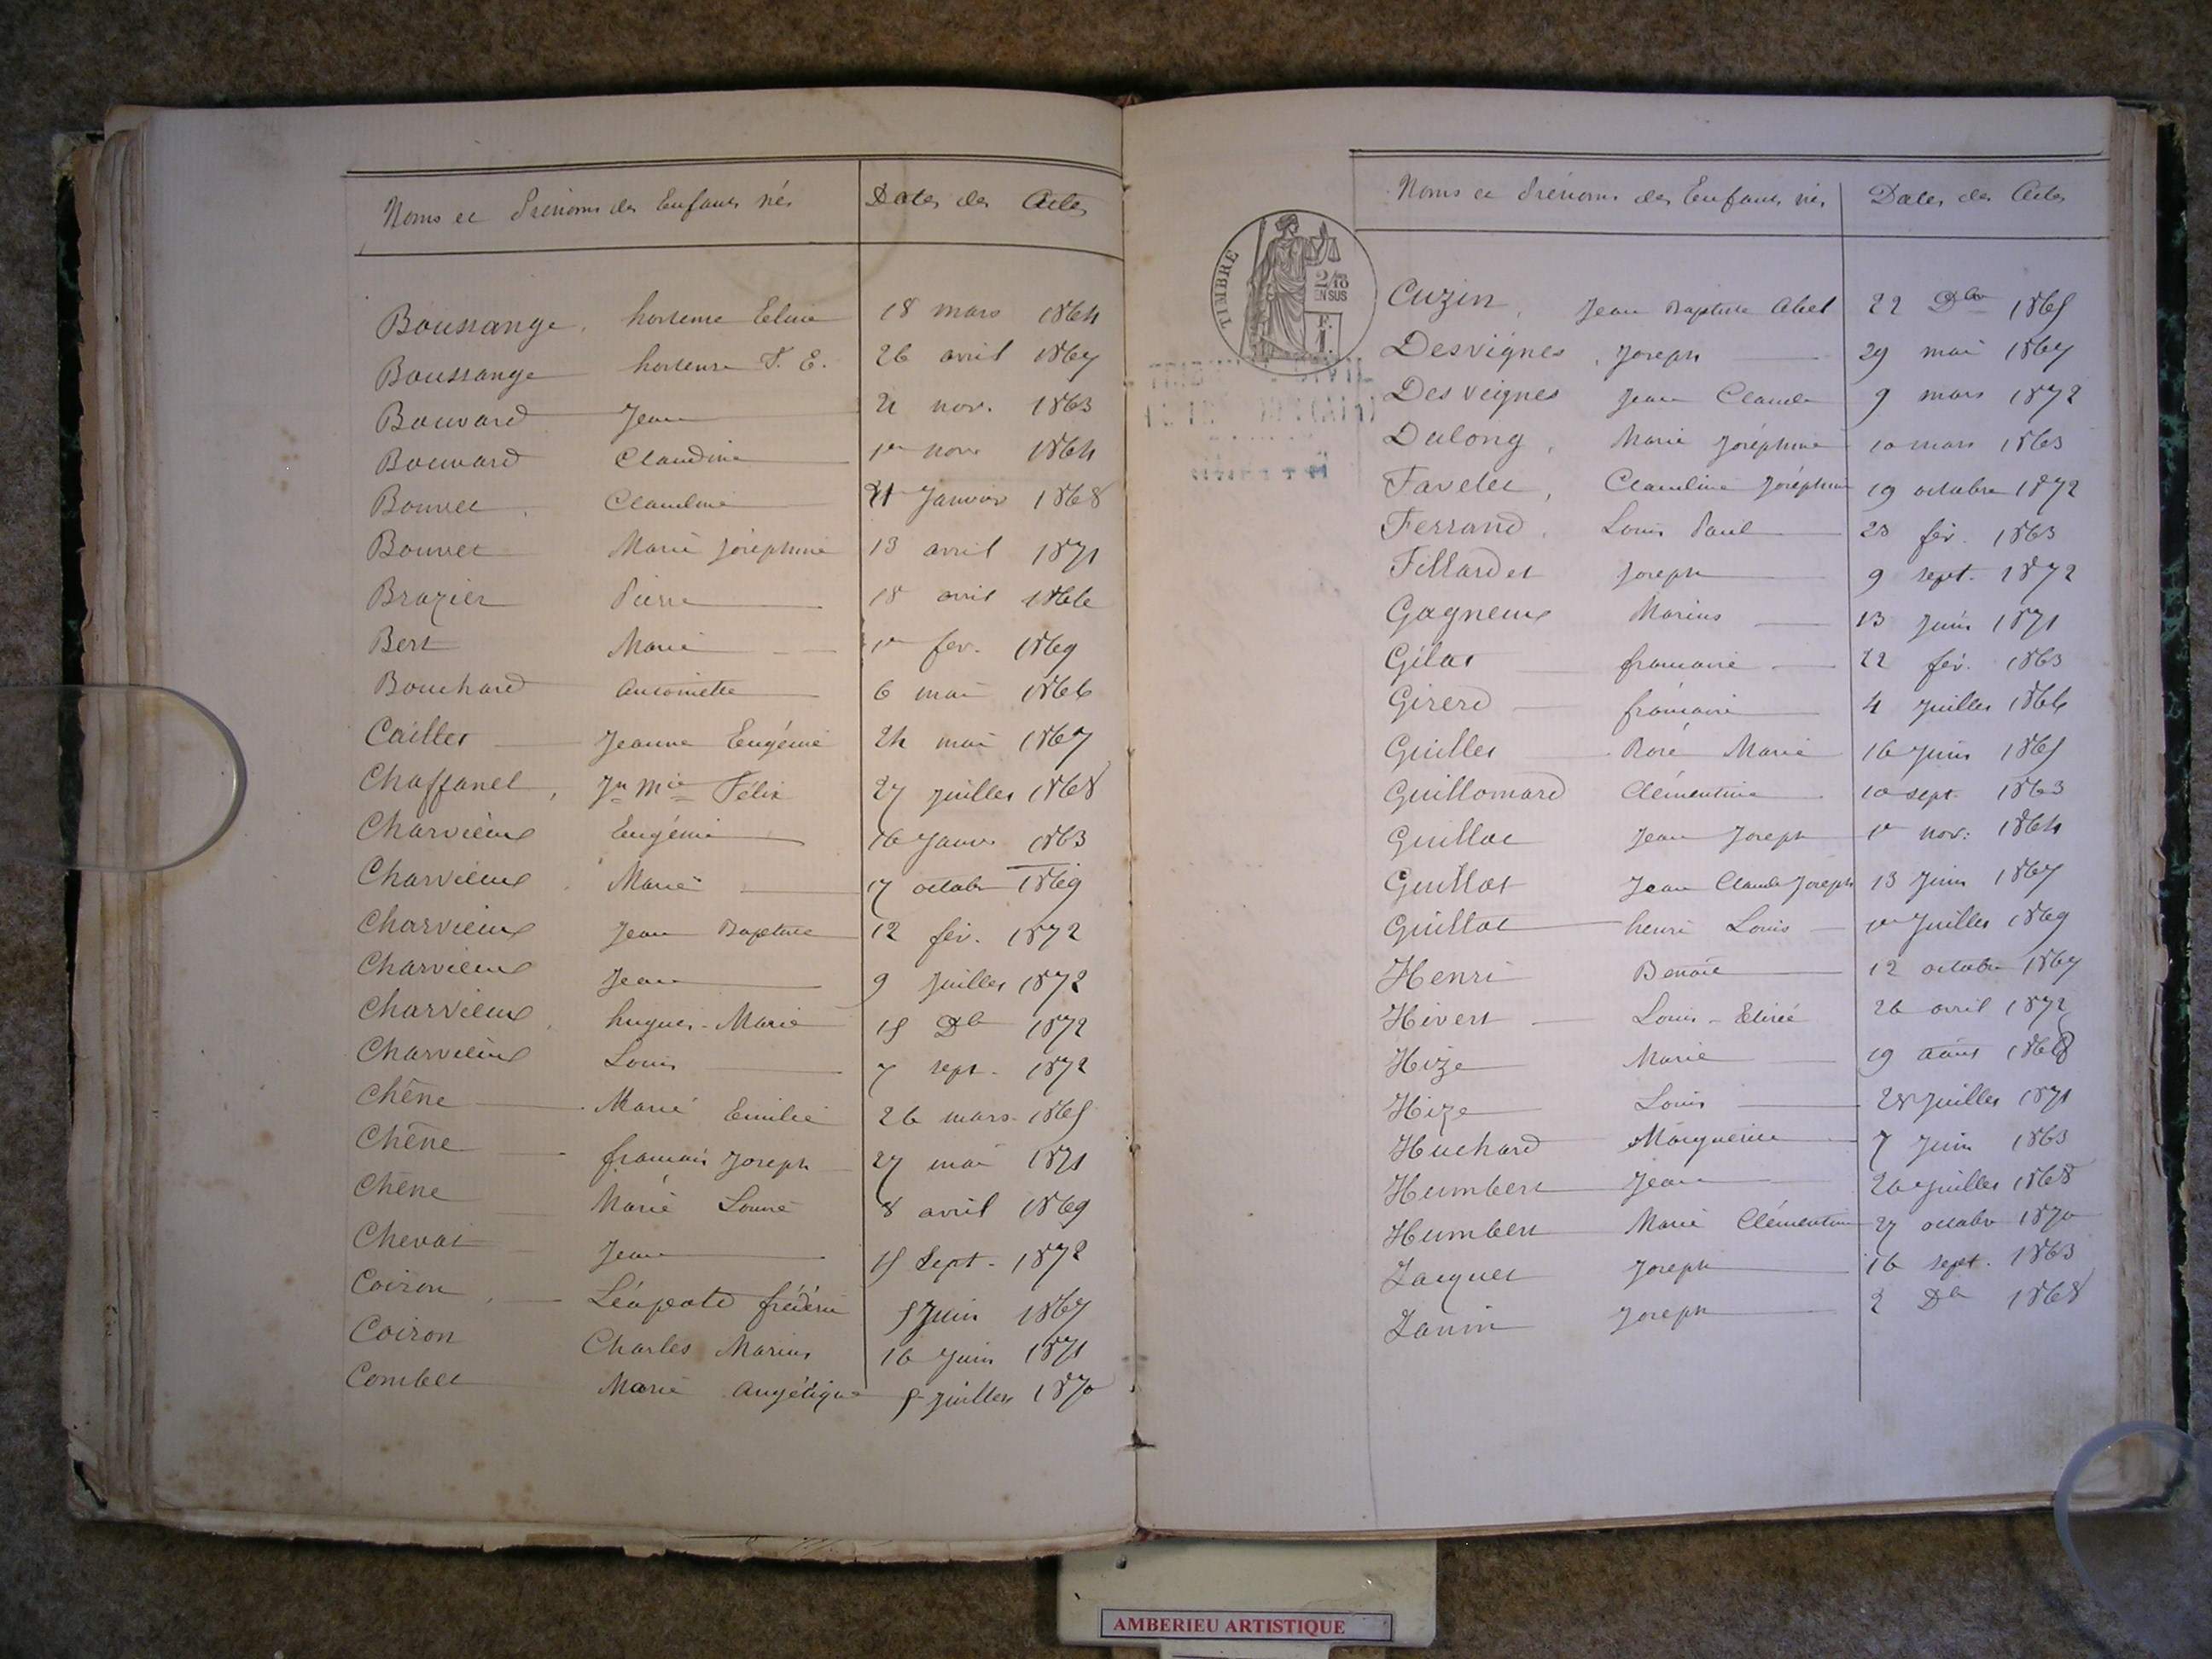 Noms et Prénoms des Enfants nés Dates des Actes
Boussange, hortense Elina 18 mars 1864
Boussange hortense F. E. 26 avril 1867
Bouvard Jean 21 nov. 1863
Bouvard Claudine 1er nov 1864
Bouvet, Claudine 21 Janvier 1868
Bouvet Marie Joséphine 13 avril 1871
Brazier Pierre 18 avril 1866
Bert Marie 1er fev. 1869
Bouchard Antoinette 6 mai 1866
Caillet Jeanne Eugénie 24 mai 1867
Chaffanel, Jn Mie Félix 27 juillet 1868
Charvieux Eugénie 16 Janv 1863
Charvieux, Marie 17 octobr 1869
Charvieux Jean Baptiste 12 fév. 1872
Charvieux Jean 9 Juillet 1872
Charvieux, hugues-Marie 15 Db 1872
Charvieux Louis 7 sept. 1872
Chêne Marie Emilie 26 mars 1865
Chêne francois Joseph 27 mai 1871
Chêne Marie Louise 8 avril 1869
Chevat Jean 15 Sept. 1872
Coiron, Léopold frédéric 5 Juin 1867
Coiron Charles Marius 16 Juin 1871
Combet Marie Angélique 5 Juillet 1870
TIMBRE
2/10
EN SUS
F.
1.
Noms et Prénoms des Enfants nés Dates des Actes
Cuzin, Jean Baptiste Abel 22 Dbr 1865
Desvignes, Joseph 29 mai 1867
Desveignes Jean Claude 9 mars 1872
Dulong, Marie Joséphine 10 mars 1863
Favelet, Claudine Joséphine 19 octobre 1872
Ferrand, Louis Paul 23 fév. 1863
Fillardet Joseph 9 sept. 1872
Gagneux Marius 13 Juin 1871
Gélat francoise 22 fév. 1863
Girerd francoise 4 Juillet 1866
Guillet Rose Marie 16 Juin 1865
Guillomard Clémentine 10 sept. 1863
Guillot Jean Joseph 1er nov: 1864
Guillot Jean Claude Joseph 13 Juin 1867
Guillot henri Louis 1er Juillet 1869
Henri Benoit 12 octobre 1867
Hivert Louis-Elisée 26 avril 1872
Hize Marie 19 août 1868
Hize Louis 28 Juillet 1871
Huchard Marguerite 7 Juin 1863
Humbert Jean 26 Juillet 1868
Humbert Marie Clémentine 27 octobr 1870
Jacquet Joseph 16 sept. 1863
Janin Joseph 2 Db 1868
AMBERIEU ARTISTIQUE